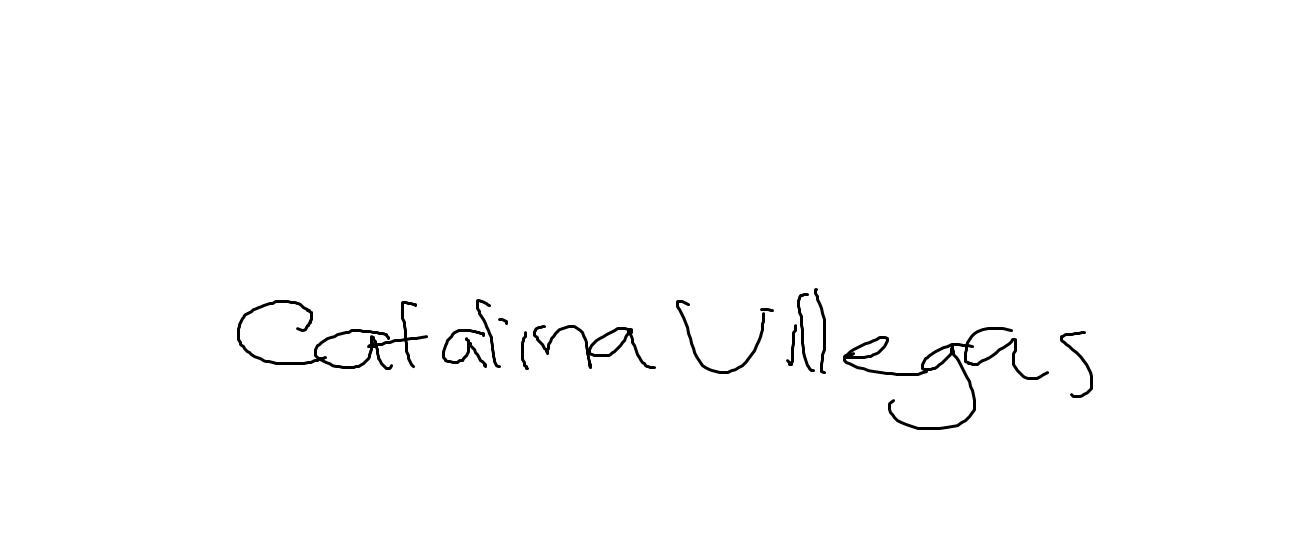 Catalina Villegas